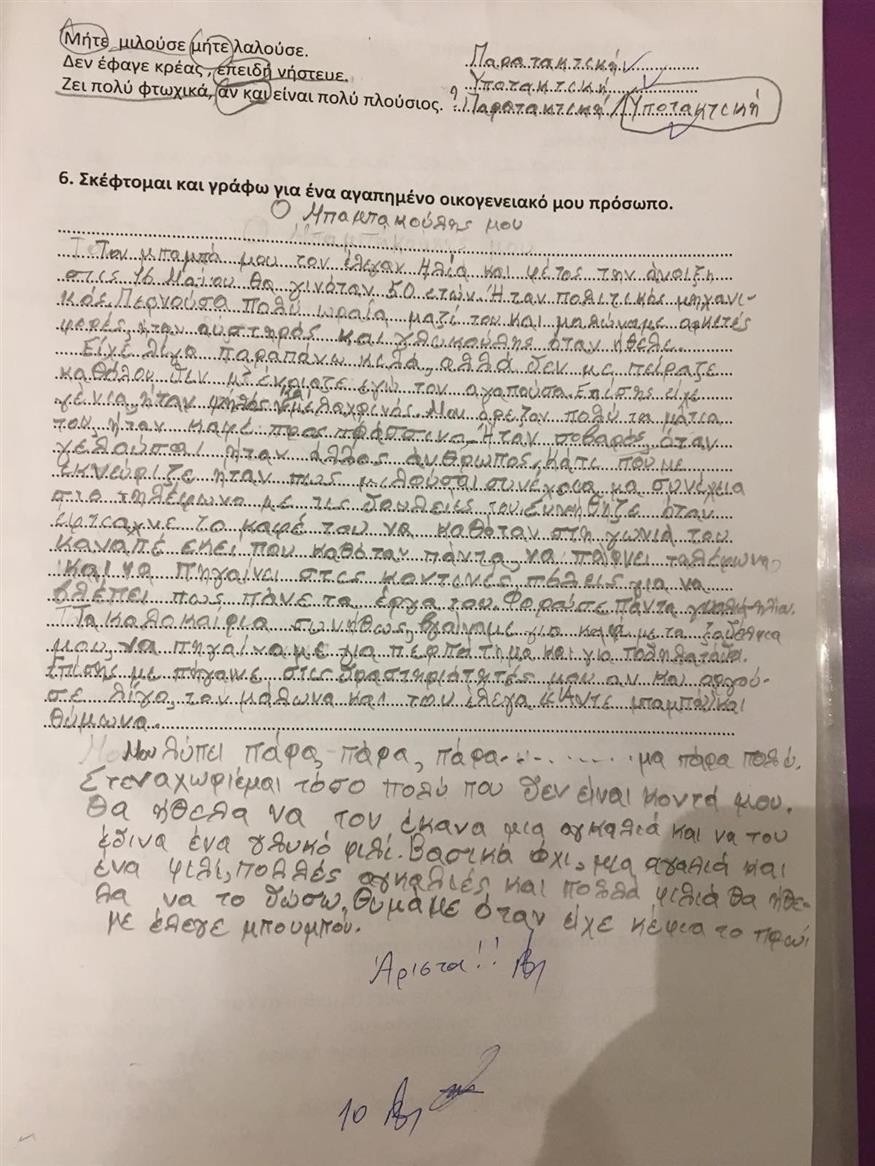 Μήτε μιλούσε μήτε λαλούσε. Παρατακτική
Δεν έφαγε κρέας, επειδή νήστευε. Υποτακτική
Ζει πολύ φτωχικά, αν και είναι πολύ πλούσιος. ? Παρατακτική / Υποτακτική
6. Σκέφτομαι και γράφω για ένα αγαπημένο οικογενειακό μου πρόσωπο.
Ο Μπαμπακούλης μου
Τον μπαμπά μου τον έλεγαν Ηλία και φέτος την άνοιξη
στις 16 Μαΐου θα γινόταν 50 ετών. Ήταν πολιτικός μηχανι-
κός. Περνούσα πολύ ωραία μαζί του και μαλώναμε αρκετές
φορές, ήταν αυστηρός και γλυκούλης όταν ήθελε.
Είχε λίγα παραπάνω κιλά, αλλά δεν με πείραζε
καθόλου δεν μ' ένοιαζε εγώ τον αγαπούσα. Επίσης είχε
γένια, ήταν ψηλός και μελαχρινός. Μου άρεζαν πολύ τα μάτια
του, ήταν καφέ προς πράσινα. Ήταν σοβαρός, όταν
γελούσαι ήταν άλλος άνθρωπος. Κάτι που με
εκνεύριζε ήταν πως μιλούσαι συνέχεια μα συνέχεια
στο τηλέφωνο με τις δουλειές του. Συνήθηζε όταν
έφτιαχνε το καφέ του να καθόταν στη γωνιά του
καναπέ εκεί που καθόταν πάντα, να παίρνει τηλέφωνο
και να πηγαίνει στις κοντινές πόλεις για να
βλέπει πως πάνε τα έργα του. Φορούσε πάντα γυαλιά ηλίου.
Τα καλοκαίρια συνήθως, βγαίναμε για καφέ με τα ξαδέλφια
μου, να πηγαίναμε για περπάτημα και για ποδηλατάδα.
Επίσης με πήγαινε στις δραστηριότητές μου αν και αργού-
σε λίγο, τον μάλωνα και του έλεγα «Άντε μπαμπά» και
θύμωνα.
Μου λύπει πάρα, πάρα, πάρα.......... μα πάρα πολύ.
Στεναχωριέμαι τόσο πολύ που δεν είναι κοντά μου.
Θα ήθελα να τον έκανα μια αγκαλιά και να του
έδινα ένα γλυκό φιλί. Βασικά όχι, μια αγαλιά και
ένα φιλί, πολλές αγκαλιές και πολλά φιλιά θα ήθε-
λα να το δώσω. Θυμάμε όταν είχε κέφια το πρωί
με έλεγε μπουμπού.
Άριστα!!
10